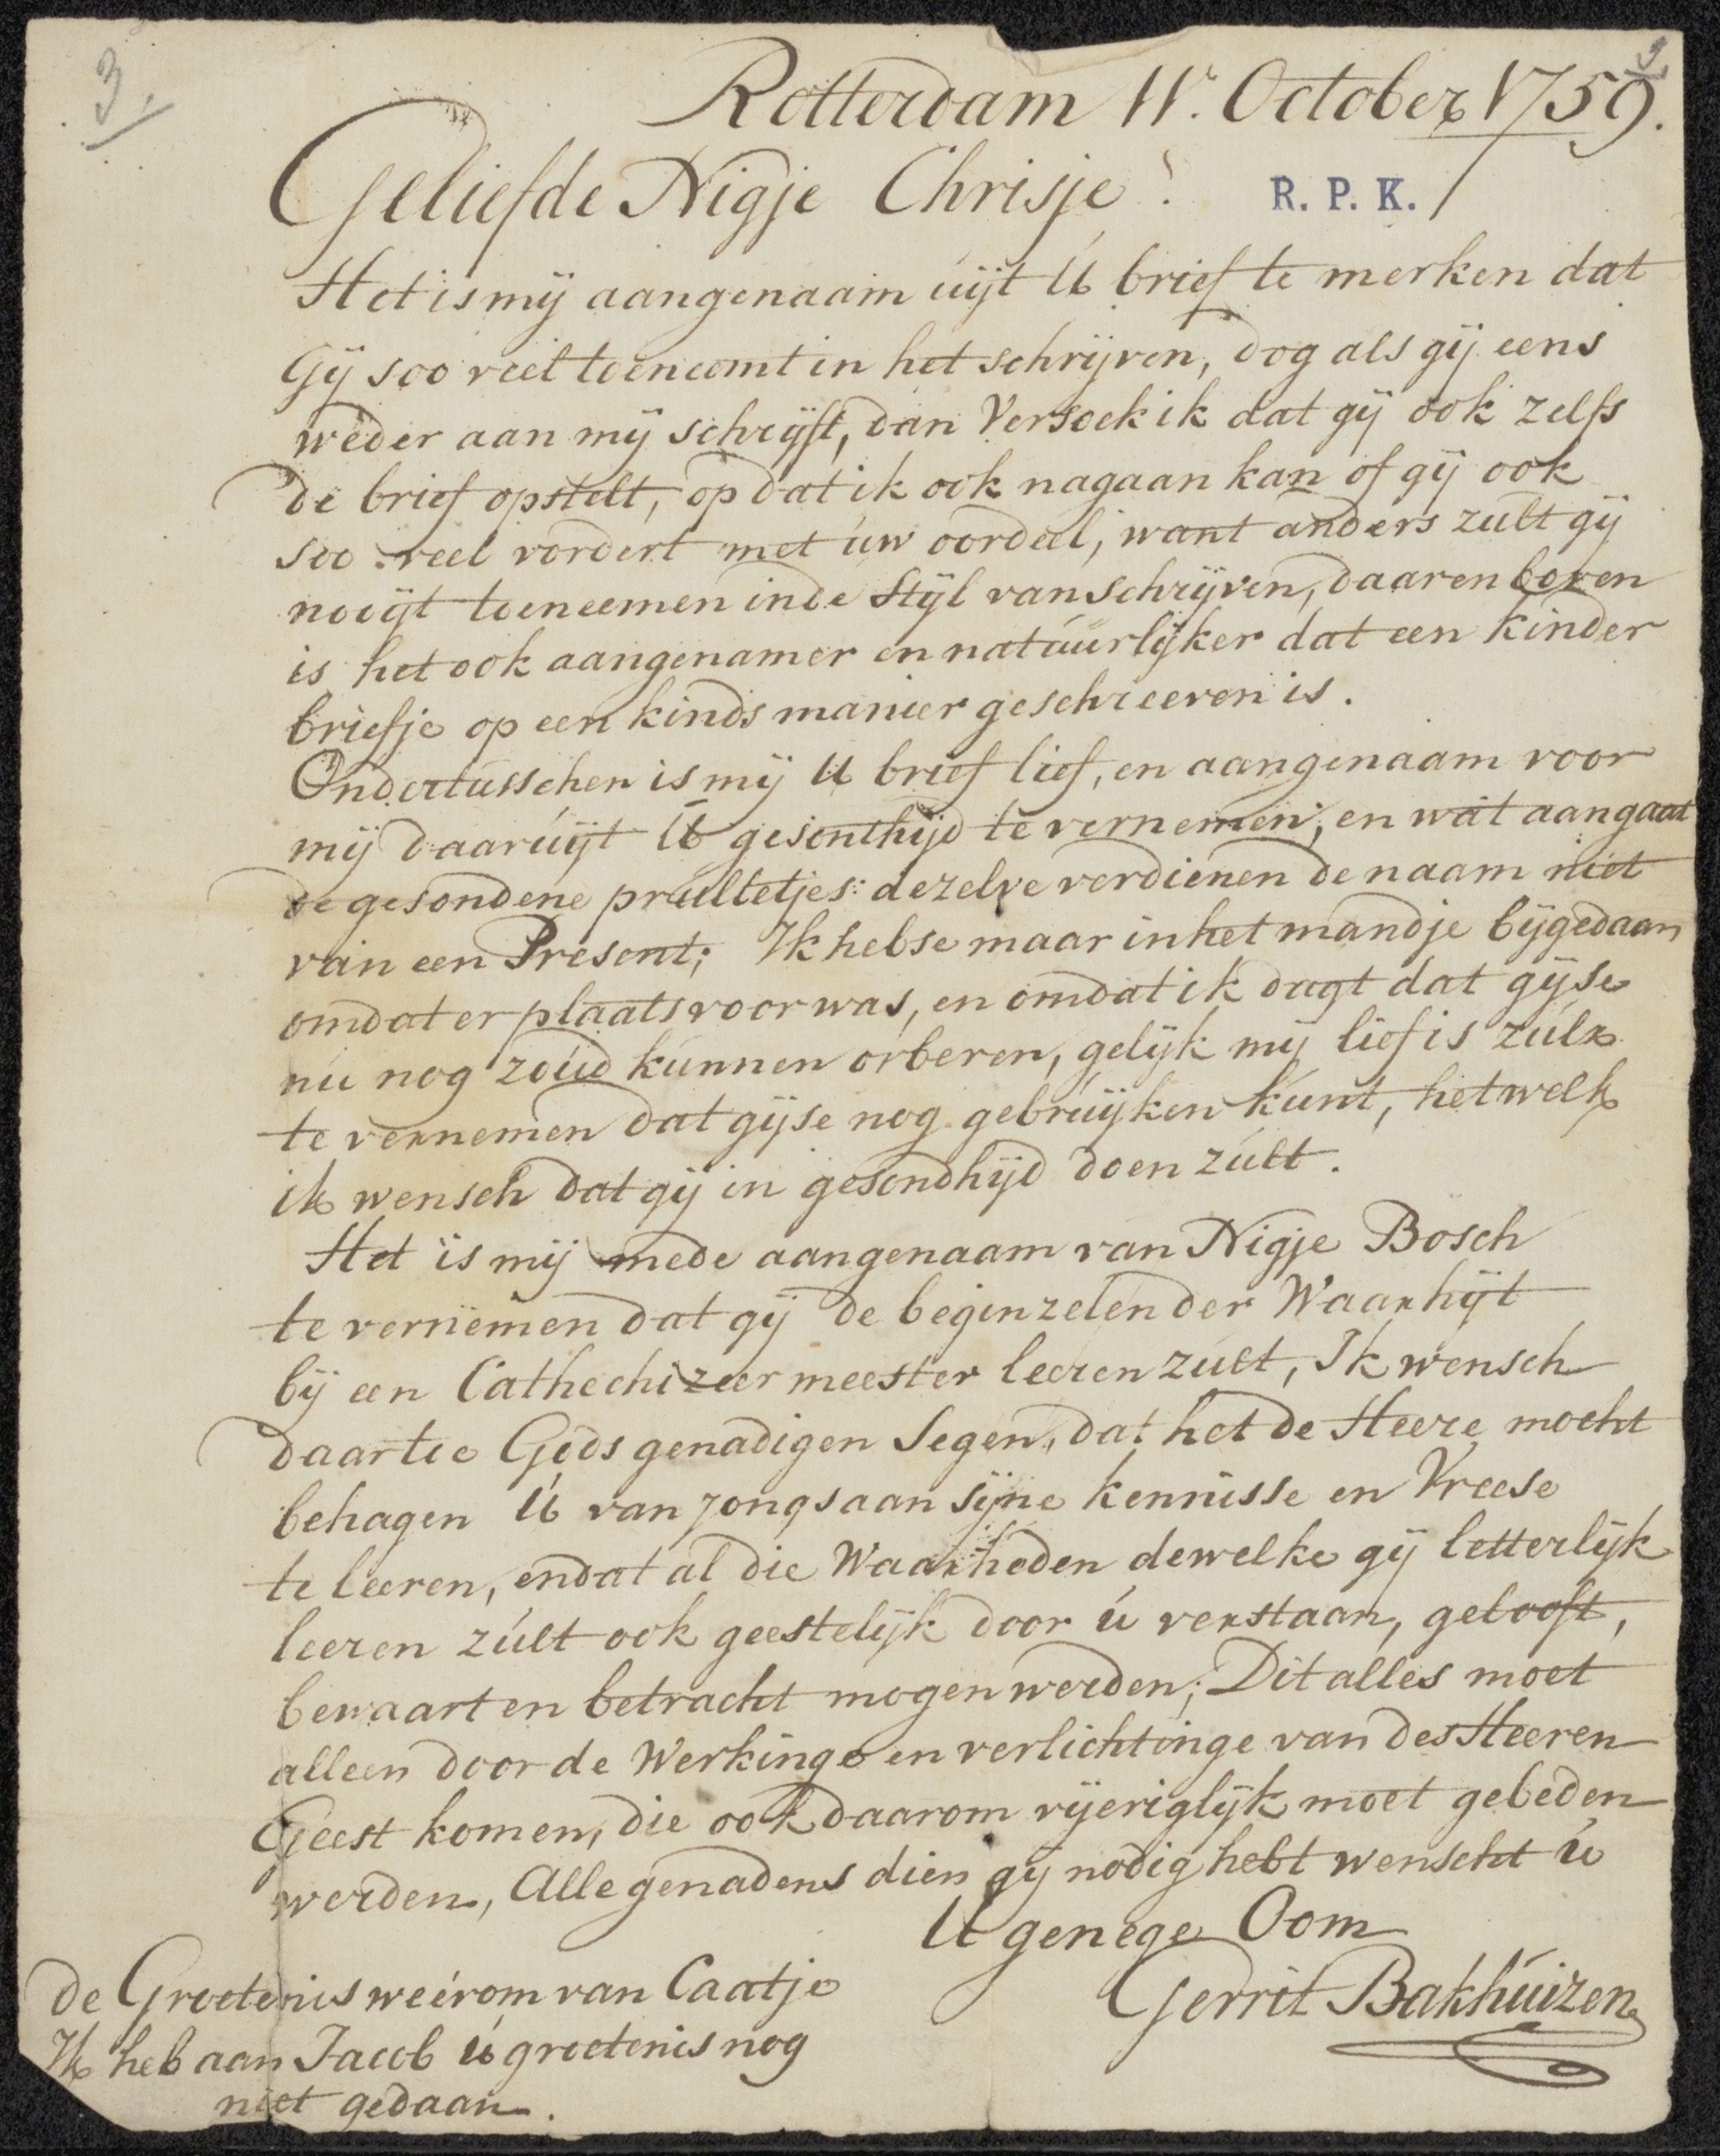 3.
3
Rotterdam 11e. October 1759.
Geliefde Nigje Chrisje!
R. P. K.
Het is mij aangenaam úijt Ú brief te merken dat
Gij soo veel toeneemt in het schrijven, dog als gij eens
weder aan mij schrijft, dan Versoek ik dat gij ook zelfs
de brief opstelt, op dat ik ook nagaan kan of gij ook
soo veel vordert met úw oordeel, want anders zúlt gij
nooijt toeneemen in de Stijl van schrijven, daarenboven
is het ook aangenamer en natúúrlijker dat een kinder
briefje op een kinds manier geschreeven is.
Ondertússchen is mij Ú brief lief, en aangenaam voor
mij daarúijt Ú gesonthijd te vernemen; en wat aangaat
de gesondene prúlletjes: dezelve verdienen de naam niet
van een Present; Ik heb se maar in het mandje bijgedaan
omdat er plaats voor was, en omdat ik dagt dat gij se
nú nog zoúd kúnnen orberen, gelijk mij lief is zúlx
te vernemen dat gij se nog gebrúijken kúnt, het welk
ik wensch dat gij in gesondhijd doen zúlt.
Het is mij mede aangenaam van Nigje Bosch
te vernemen dat gij de beginzelen der Waarhijt
bij een Cathechizeer meester leeren zúlt, Ik wensch
daartoe Gods genadigen Segen, dat het de Heere mocht
behagen Ú van jongs aan sijne kennisse en Vreese
te leeren, en dat al die Waarheden dewelke gij letterlijk
leeren zúlt ook geestelijk door ú verstaan, gelooft,
bewaart en betracht mogen werden; Dit alles moet
alleen door de Werkinge en verlichtinge van des Heeren
Geest komen, die ook daarom vijeriglijk moet gebeden
werden, Alle genadens dien gij nodig hebt wenscht ú
Ú genege Oom
Gerrit Bakhúizen
de Groetenis weêrom van Caatje
Ik heb aan Jacob ú groetenis nog
niet gedaan.